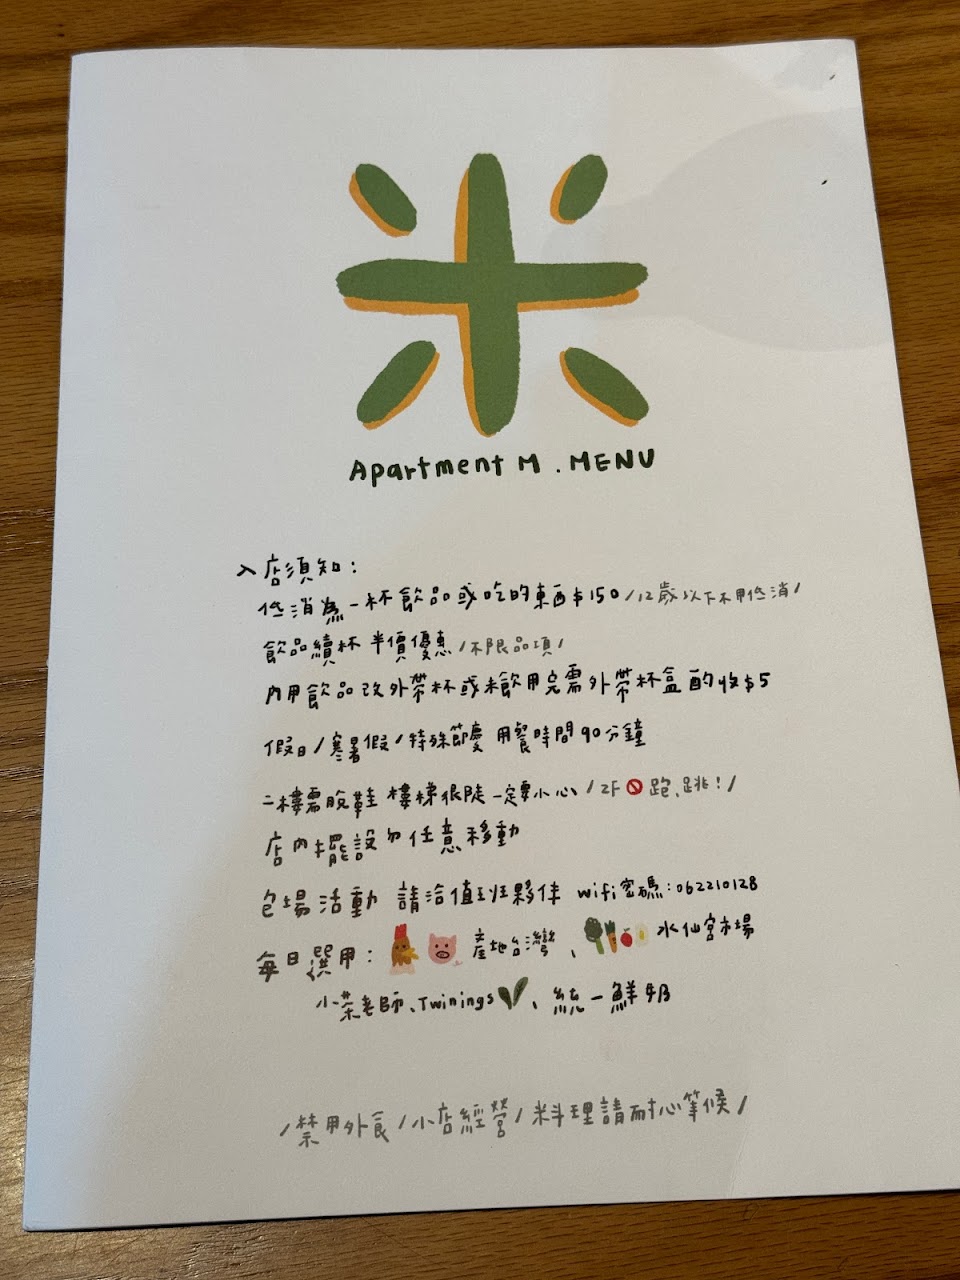 米
Apartment M . MENU
入店須知：
低消為一杯飲品或吃的東西$150 /12歲以下不用低消/
飲品續杯 半價優惠 /不限品項/
內用飲品改外帶杯或未飲用完需外帶杯盒酌收$5
假日/寒暑假/特殊節慶 用餐時間90分鐘
二樓需脫鞋 樓梯很陡一定要小心 /2F🚫跑、跳！/
店內擺設勿任意移動
包場活動 請洽值班夥伴 wifi密碼：062210128
每日選用： 產地台灣、 水仙宮市場
小茶老師、Twinings、統一鮮奶
/禁用外食/小店經營/料理請耐心等候/